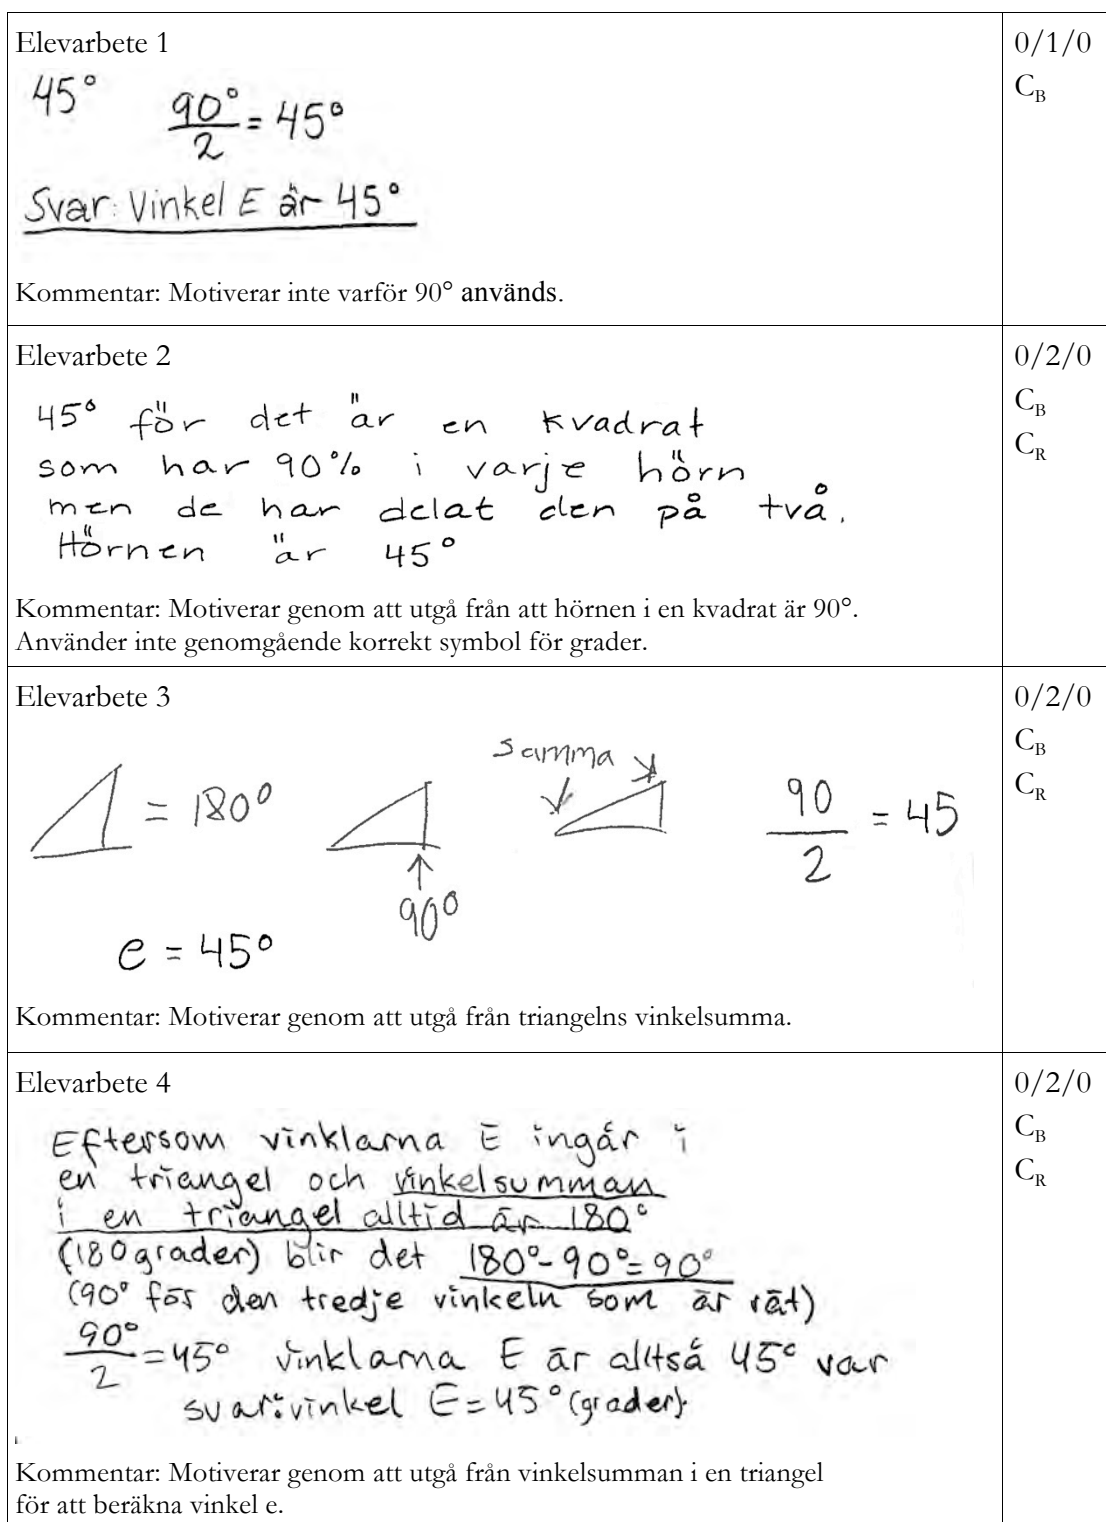 Elevarbete 1
0/1/0
C_B
45° 90°/2 = 45°
Svar: Vinkel E är 45°
Kommentar: Motiverar inte varför 90° används.
Elevarbete 2
0/2/0
C_B
C_R
45° för det är en kvadrat
som har 90% i varje hörn
men de har delat den på två.
Hörnen är 45°
Kommentar: Motiverar genom att utgå från att hörnen i en kvadrat är 90°.
Använder inte genomgående korrekt symbol för grader.
Elevarbete 3
0/2/0
C_B
C_R
= 180°
90°
samma
90/2 = 45
e = 45°
Kommentar: Motiverar genom att utgå från triangelns vinkelsumma.
Elevarbete 4
0/2/0
C_B
C_R
Eftersom vinklarna E ingår i
en triangel och vinkelsumman
i en triangel alltid är 180°
(180 grader) blir det 180°-90°=90°
(90° för den tredje vinkeln som är rät)
90°/2 = 45° vinklarna E är alltså 45° var
svar: vinkel E = 45° (grader).
Kommentar: Motiverar genom att utgå från vinkelsumman i en triangel
för att beräkna vinkel e.